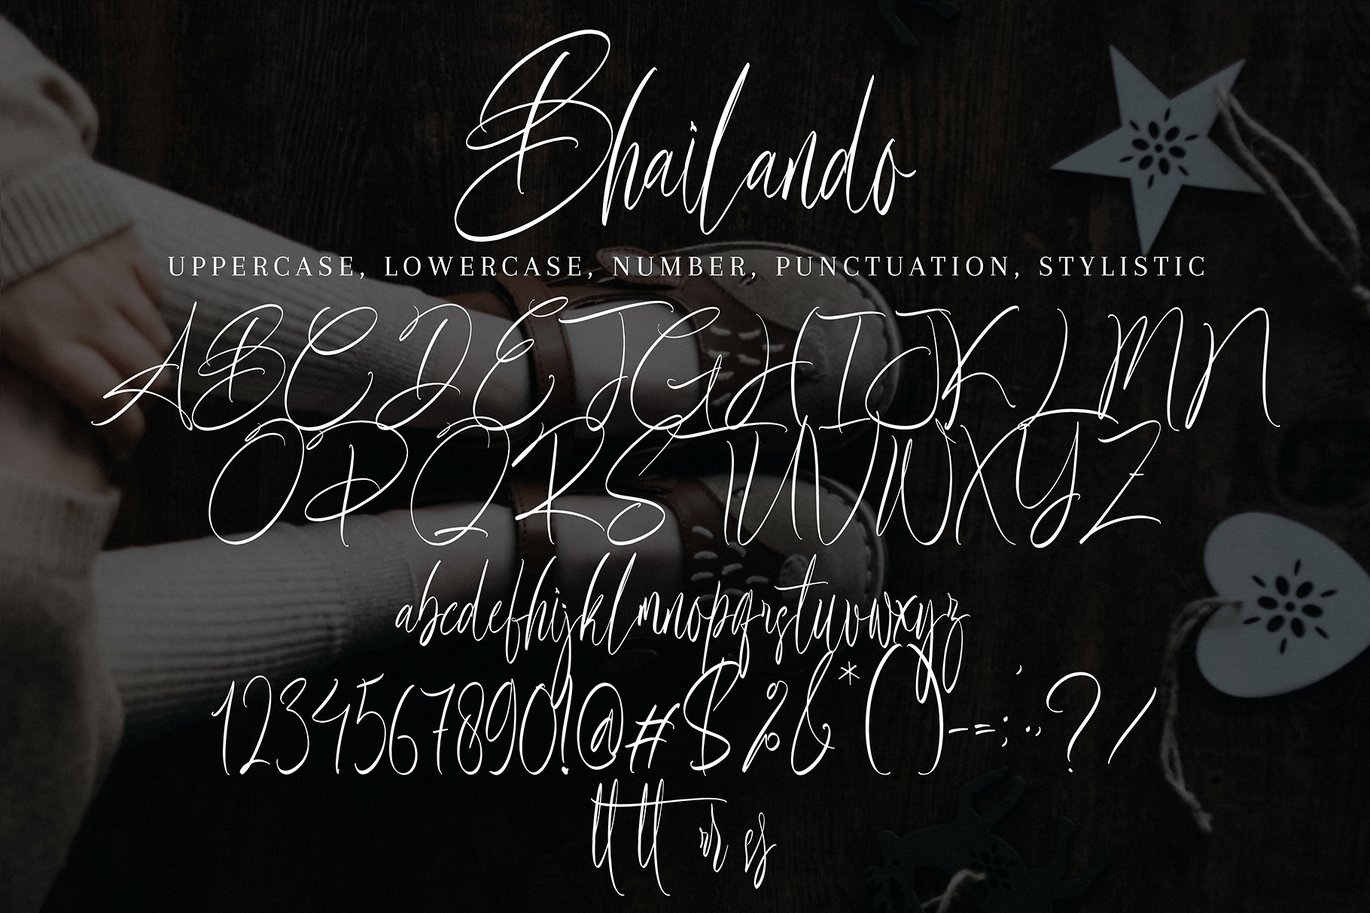 Bhailando
UPPERCASE, LOWERCASE, NUMBER, PUNCTUATION, STYLISTIC
ABCDEFGHIJKLMN
OPQRSTUVWXYZ
abcdefhijklmnopqrstuvwxyz
1234567890!@#$%&*()-=;..?/
tt tt or es